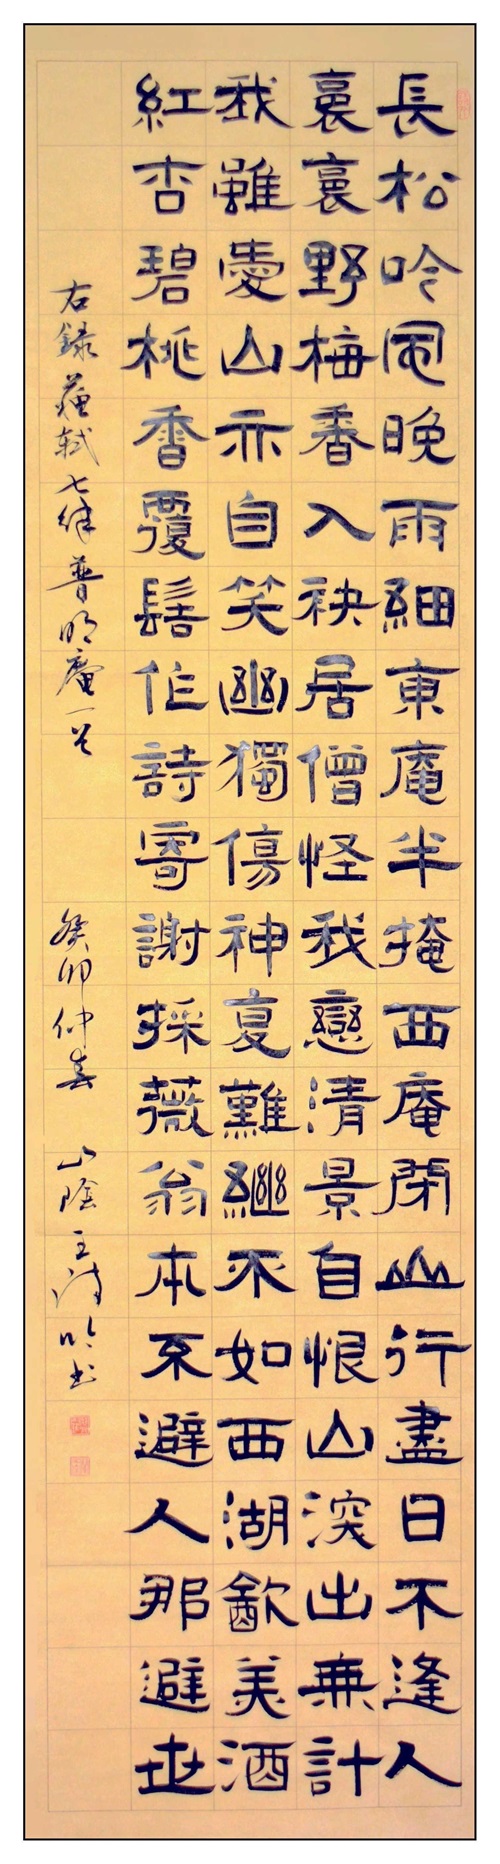 長松吟風晚雨細東庵半掩西庵閉山行盡日不逢人
裛裛野梅香入袂居僧怪我戀清景自恨山深出無計
我雖愛山亦自笑幽獨傷神難繼不如西湖飲美酒
紅杏碧桃香覆髻作詩寄謝採薇翁本不避人那避世
右錄蘇軾七律普明庵一首 癸卯仲春 山陰王書